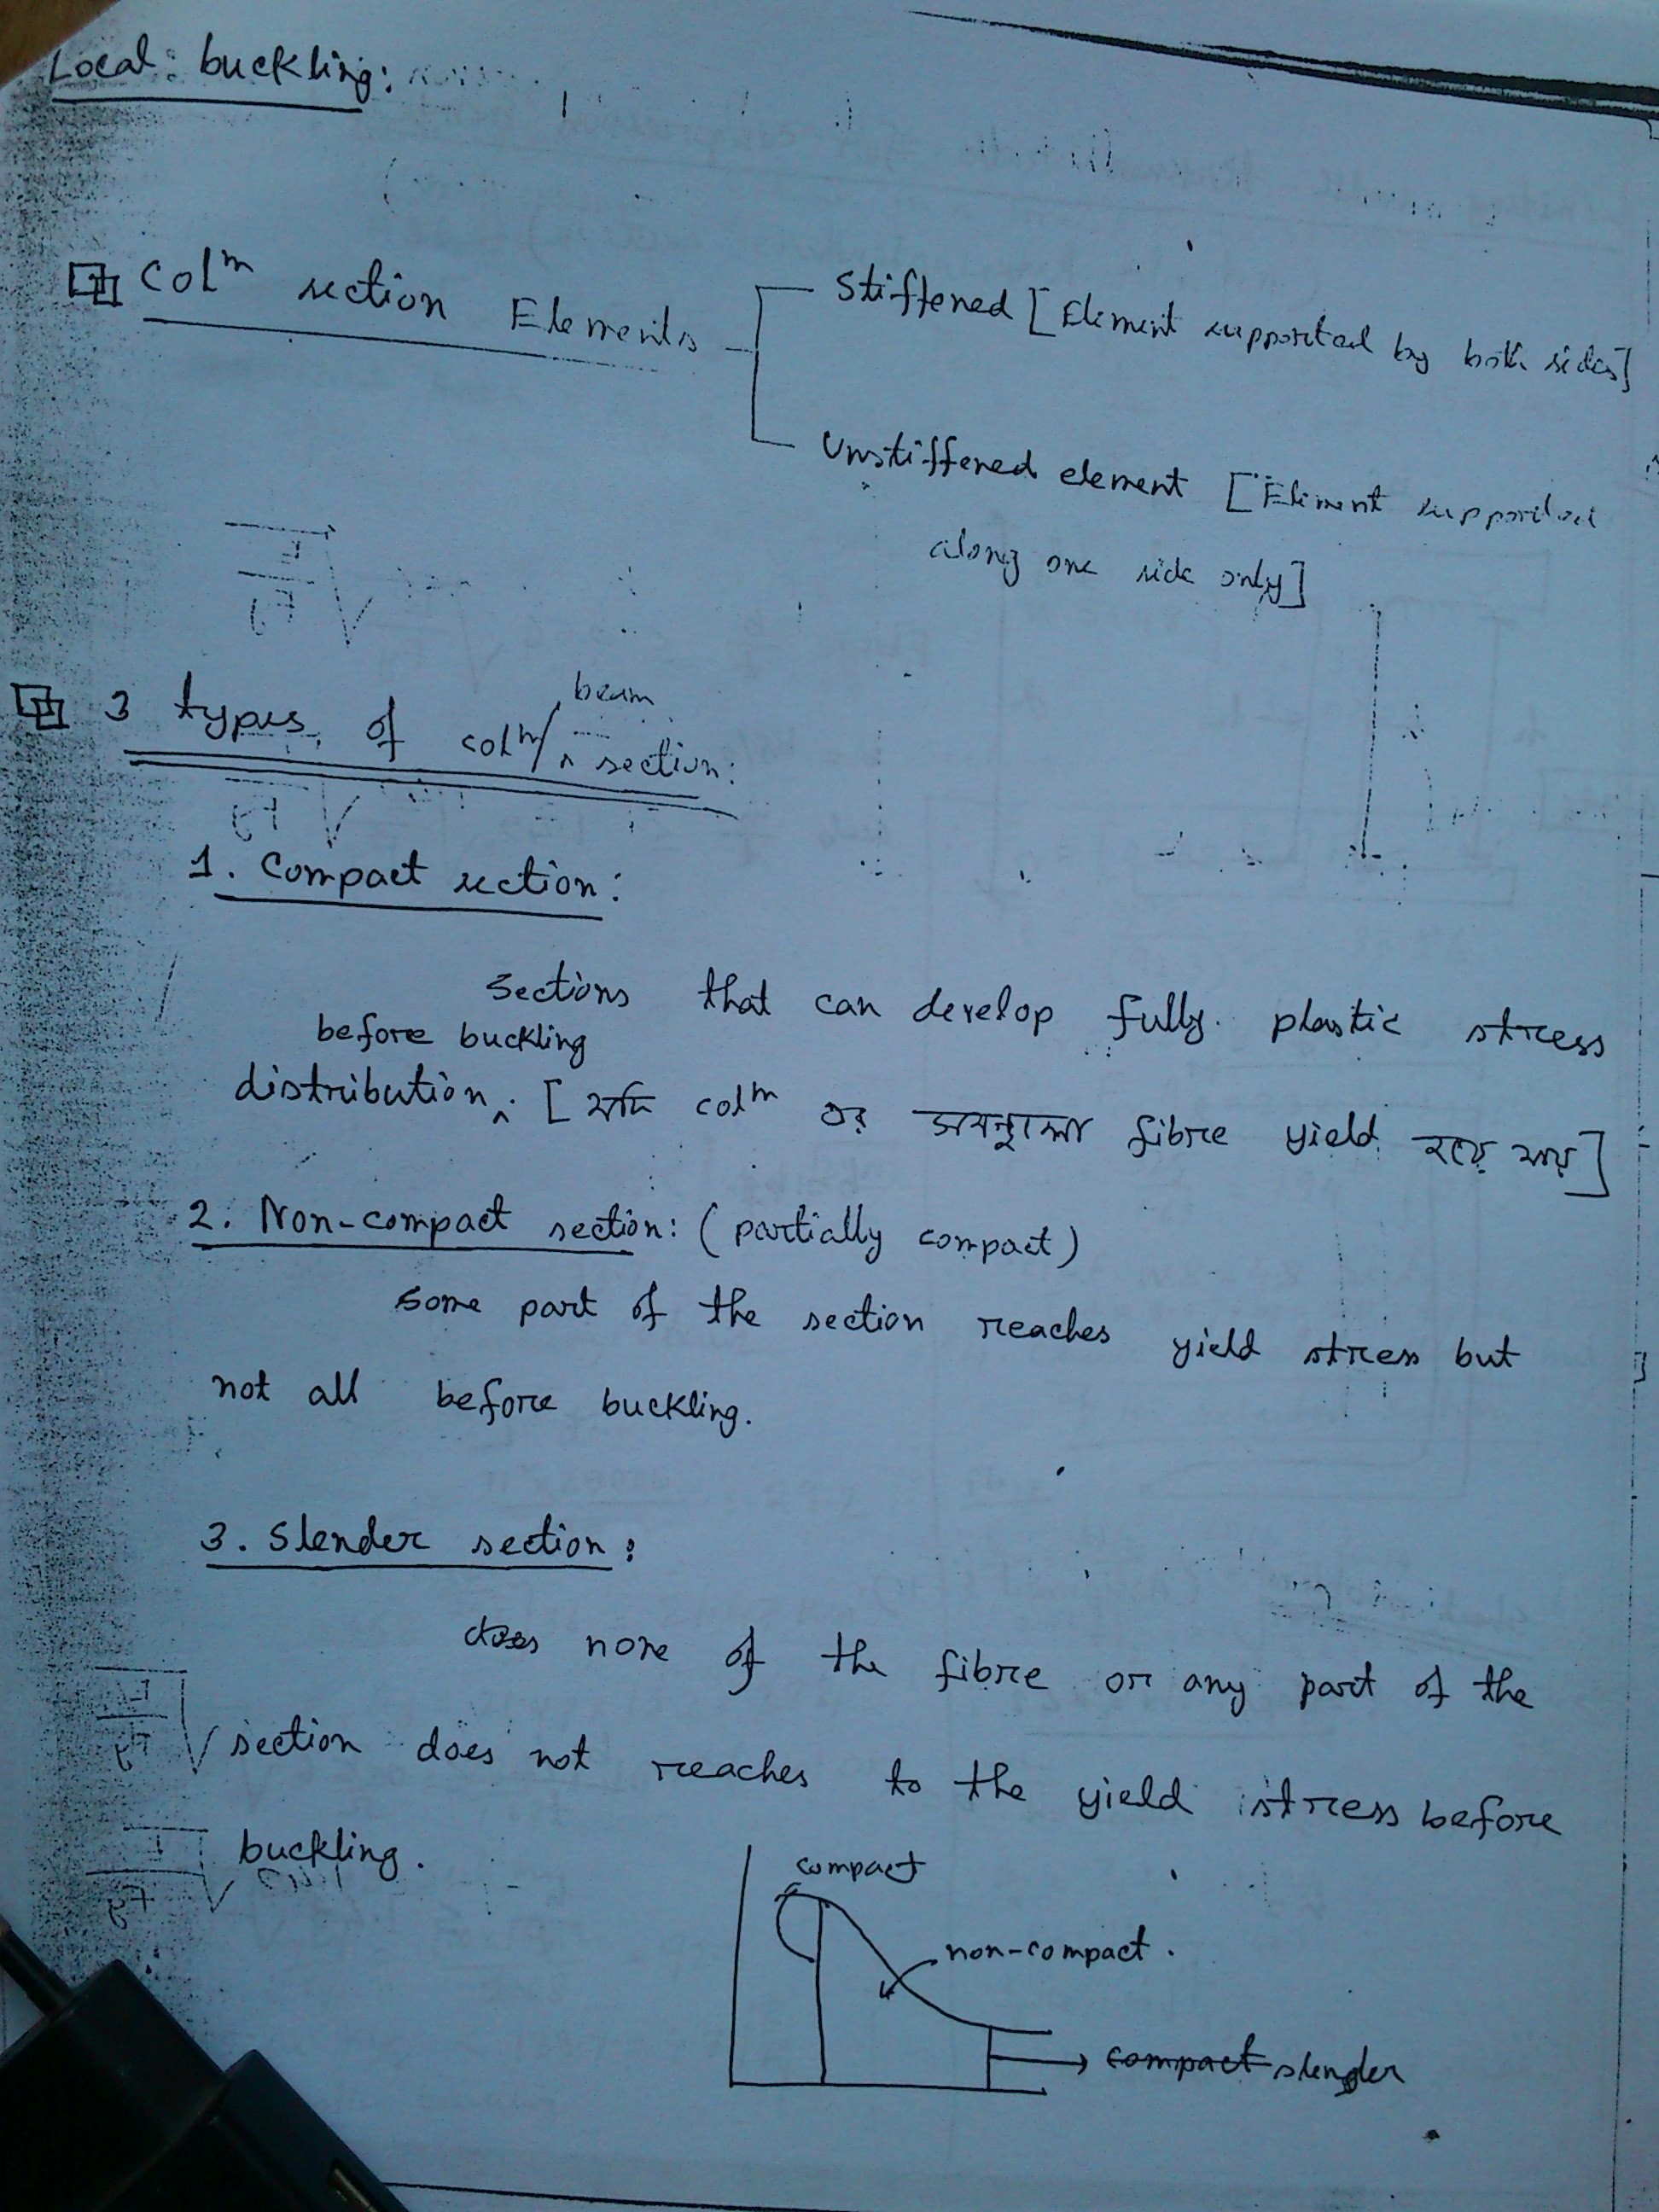 Local buckling:
Colm section Elements
Stiffened [Element supported by both sides]
Unstiffened element [Element supported
along one side only]
3 types of colm/beam section:
1. Compact section:
Sections that can develop fully plastic stress
before buckling
distribution. [যদি colm এর সবগুলো fibre yield হয়ে যায়]
2. Non-compact section: (partially compact)
Some part of the section reaches yield stress but
not all before buckling.
3. Slender section:
does none of the fibre or any part of the
section does not reaches to the yield stress before
buckling.
compact
non-compact.
compact slender